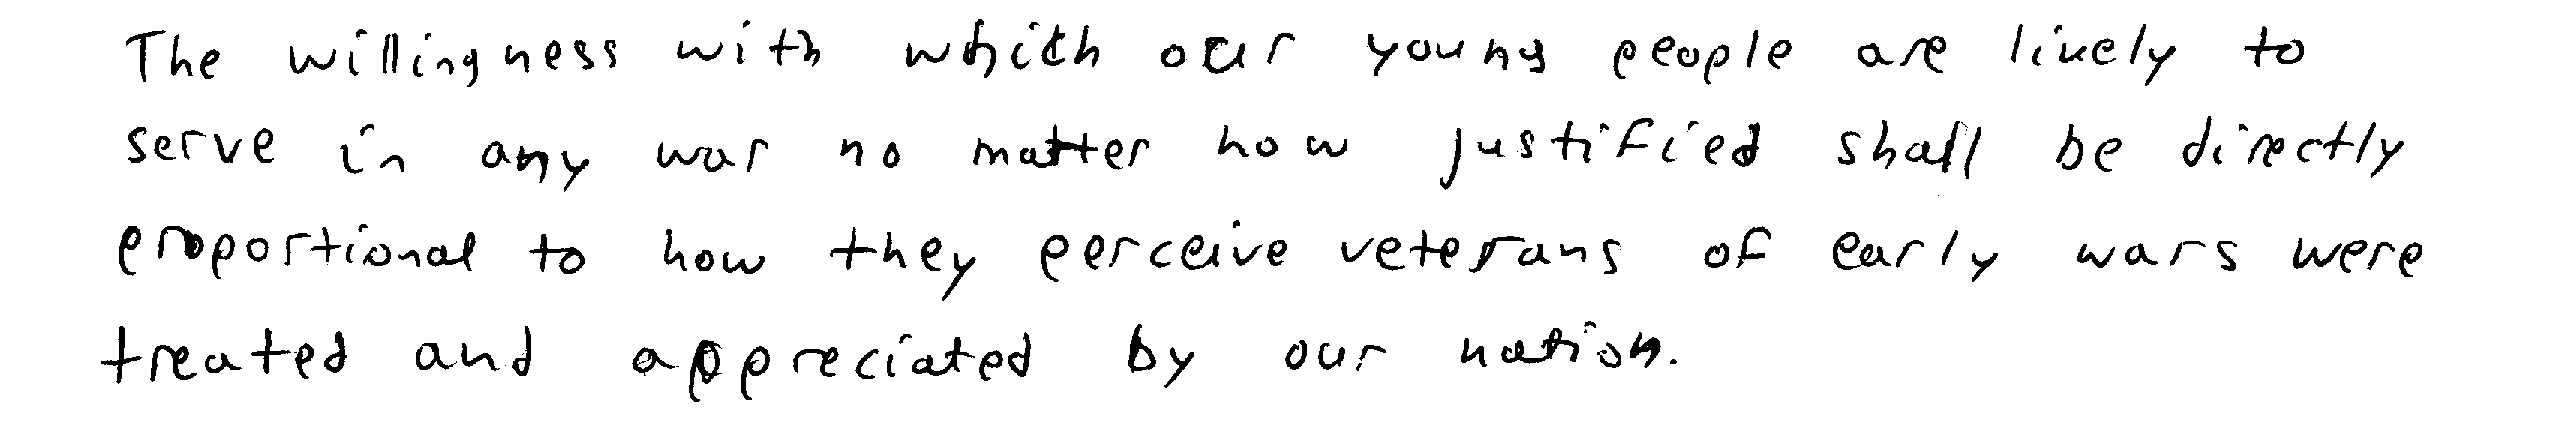 The willingness with which our young people are likely to
serve in any war no matter how justified shall be directly
proportional to how they perceive veterans of early wars were
treated and appreciated by our nation.